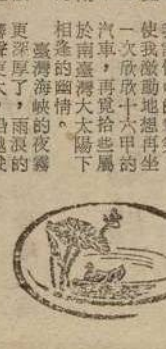 使我激動地想再坐
一次欣欣十六甲的
汽車，再覓拾些屬
於南臺灣大太陽下
相逢的幽情。
臺灣海峽的夜霧
更深厚了，雨浪的